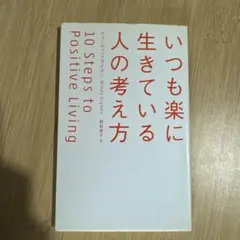 いつも楽に
生きている
人の考え方
10 Steps to
Positive Living